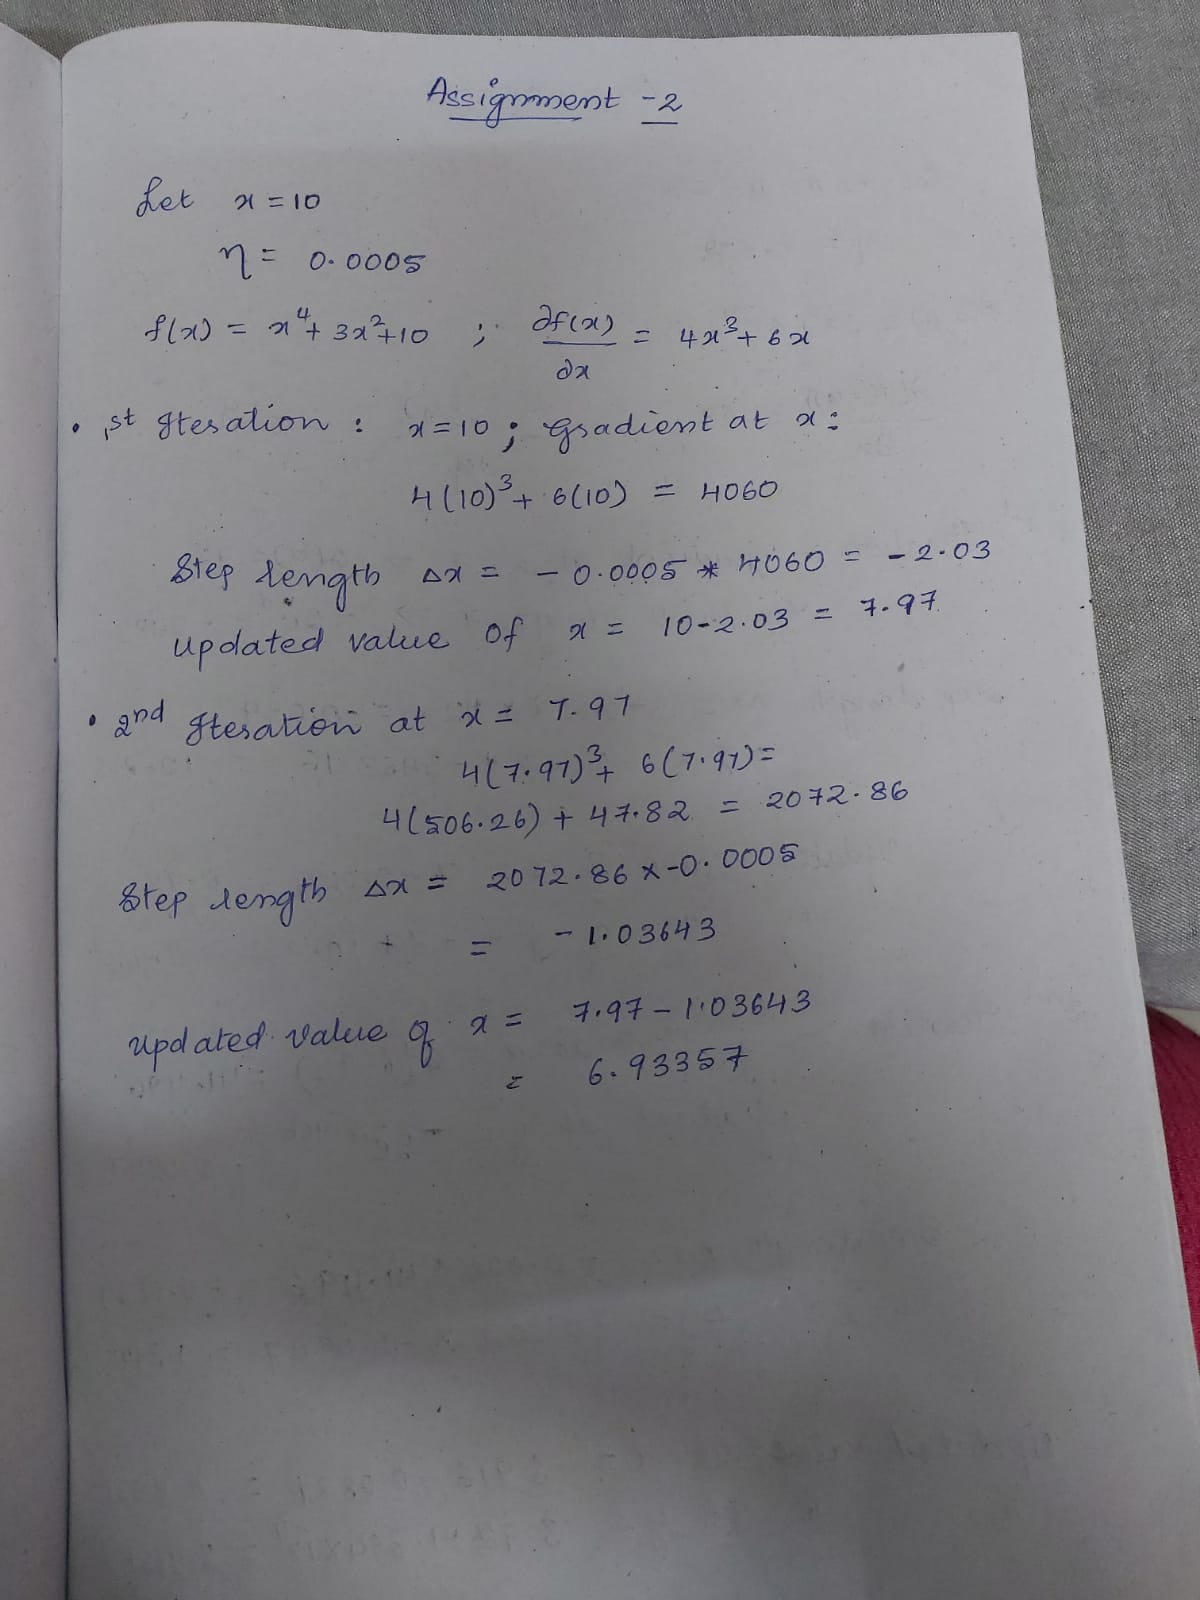 Assignment - 2
Let x = 10
η = 0.0005
f(x) = x⁴ + 3x² + 10 ; ∂f(x)/∂x = 4x³ + 6x
• 1st Iteration : x = 10 ; gradient at x :
4(10)³ + 6(10) = 4060
Step length Δx = - 0.0005 * 4060 = - 2.03
updated value of x = 10 - 2.03 = 7.97
• 2nd Iteration at x = 7.97
4(7.97)³ + 6(7.97) =
4(506.26) + 47.82 = 2072.86
Step length Δx = 2072.86 x -0.0005
= - 1.03643
updated value of x = 7.97 - 1.03643
= 6.93357